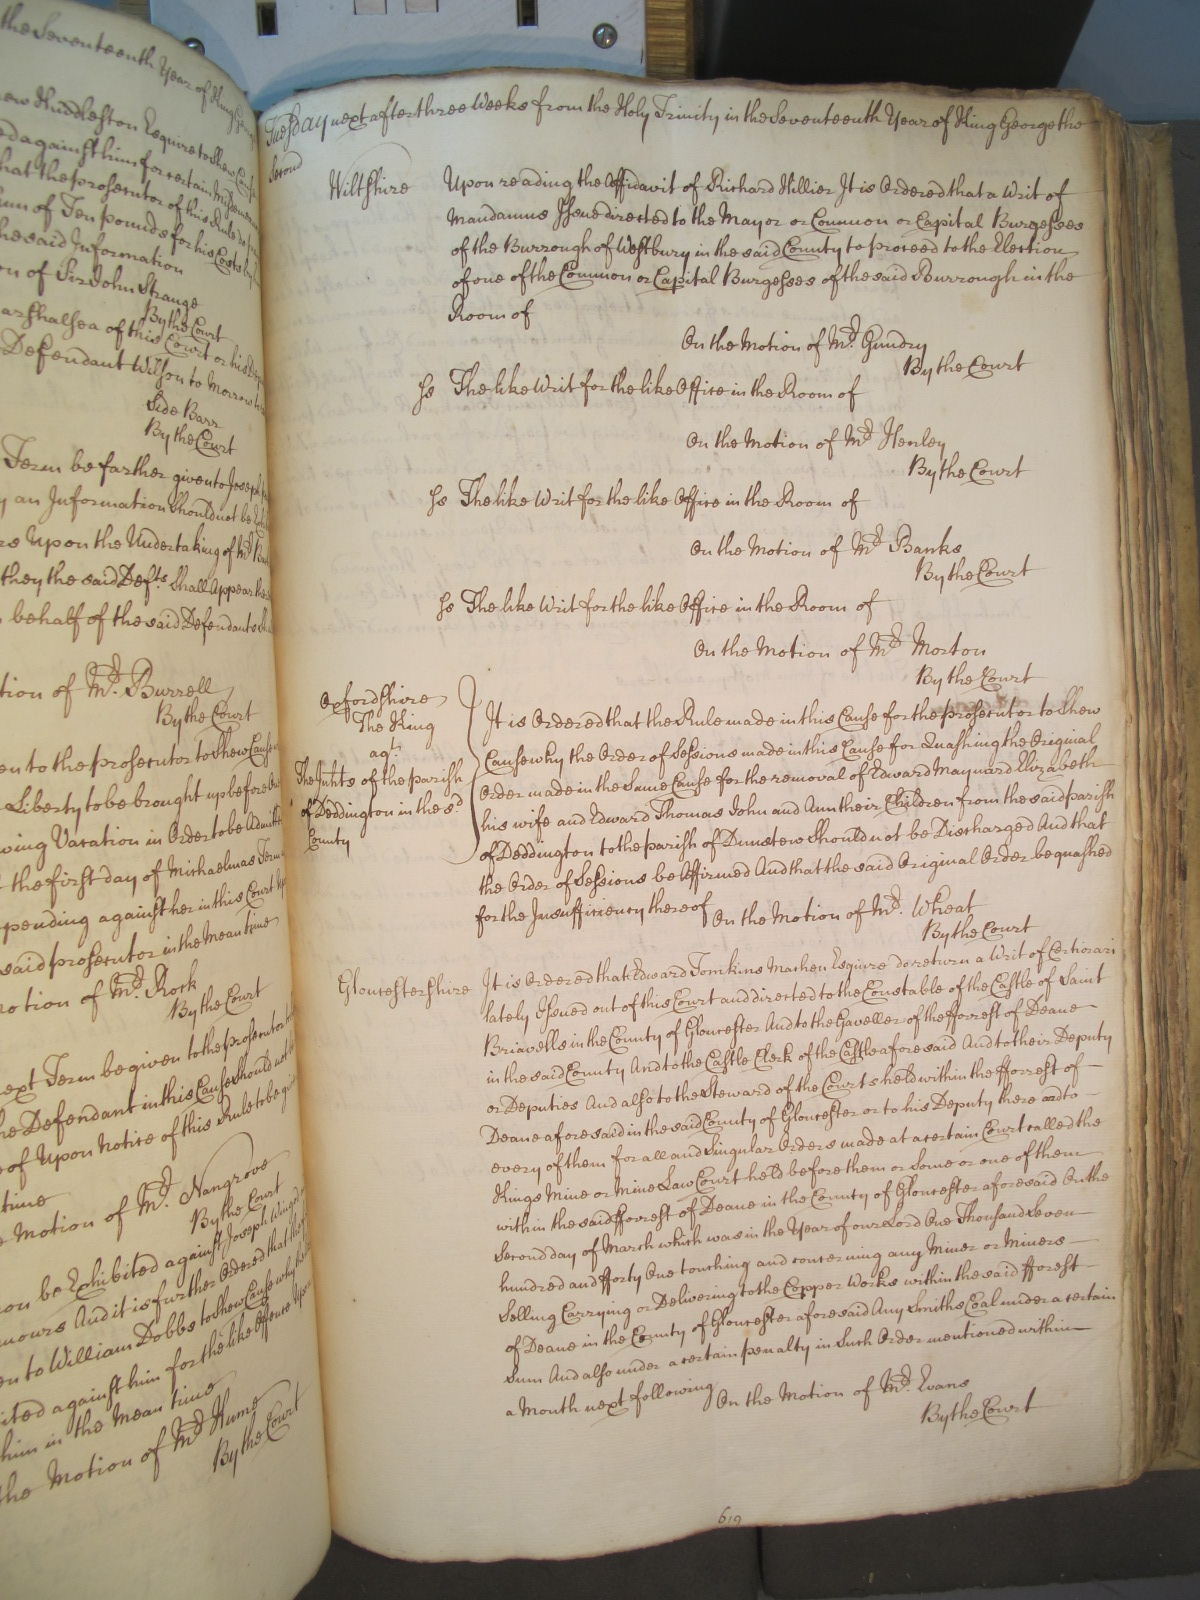 the Seventeenth Year of King George
Middleston Esquire to Shew Cause
ed against him for certain Misdemeanors
that the prosecutor of this Rule do pay
Sum of Ten pounds for his Costs
he said Information
on of Sir John Strange
By the Court
arshalsea of this Court or his
Defendant Wilson to Morrow
Side Barr
By the Court
Term be farther given to Joseph
y an Information Should not be
Upon the Undertaking of Mr.
they the said Defts. Shall Appear
behalf of the said Defendants
tion of Mr. Burrell
By the Court
en to the prosecutor to Shew Cause
Liberty to be brought up before
wing Vacation in Order to be Admitted
the first day of Michaelmas Term
pending against her in this Court
said prosecutor in the Mean time
Motion of Mr. Rock
By the Court
ext Term be given to the prosecutor
he Defendant in this Cause Should not
of Upon Notice of this Rule to be
time
Motion of Mr. Nangrove
By the Court
on be Exhibited against Joseph
mours And it is further Ordered that
en to William Dobbs to Shew Cause why
ited against him for the like Offence Upon
him in the Mean time
the Motion of Mr. Hume
By the Court
Tuesday next after three Weeks from the Holy Trinity in the Seventeenth Year of King George the
Second
Wiltshire Upon reading the Affidavit of Richard Hillier It is Ordered that a Writ of
Mandamus Issue directed to the Mayor or Common or Capital Burgesses
of the Burrough of Westbury in the said County to proceed to the Election
of one of the Common or Capital Burgesses of the said Burrough in the
Room of
On the Motion of Mr. Gundry
By the Court
ss The like Writ for the like Office in the Room of
On the Motion of Mr. Henley
By the Court
ss The like Writ for the like Office in the Room of
On the Motion of Mr. Banks
By the Court
ss The like Writ for the like Office in the Room of
On the Motion of Mr. Morton
By the Court
Oxfordshire
The King
agt.
The Inhts of the parish
of Deddington in the sd.
County
It is Ordered that the Rule made in this Cause for the prosecutor to Shew
Cause why the Order of Sessions made in this Cause for Quashing the Original
Order made in the Same Cause for the removal of Edward Maynard Elizabeth
his wife and Edward Thomas John and Ann their Children from the said parish
of Deddington to the parish of Dunstew Should not be Discharged And that
the Order of Sessions be Affirmed And that the said Original Order be quashed
for the Insufficiency thereof On the Motion of Mr. Wheat
By the Court
Gloucestershire It is Ordered that Edward Tomkins Machen Esquire do return a Writ of Certiorari
lately Issued out of this Court and directed to the Constable of the Castle of Saint
Briavells in the County of Gloucester And to the Gaveller of the fforrest of Deane
in the said County And to the Castle Clerk of the Castle aforesaid And to their Deputy
or Deputies And also to the Steward of the Courts held within the fforrest of
Deane aforesaid in the said County of Gloucester or to his Deputy there and to
every of them for all and Singular Orders made at a certain Court called the
Kings Mine or Mine Law Court held before them or some or one of them
within the said fforrest of Deane in the County of Gloucester aforesaid On the
Second day of March which was in the Year of our Lord One Thousand Seven
hundred and fforty One touching and concerning any Miner or Miners
Selling Carrying or Delivering to the Copper Works within the said fforest
of Deane in the County of Gloucester aforesaid Any Smiths Coal under a certain
Sum And also under a certain penalty in Such Order mentioned within
a Month next following On the Motion of Mr. Evans
By the Court
619